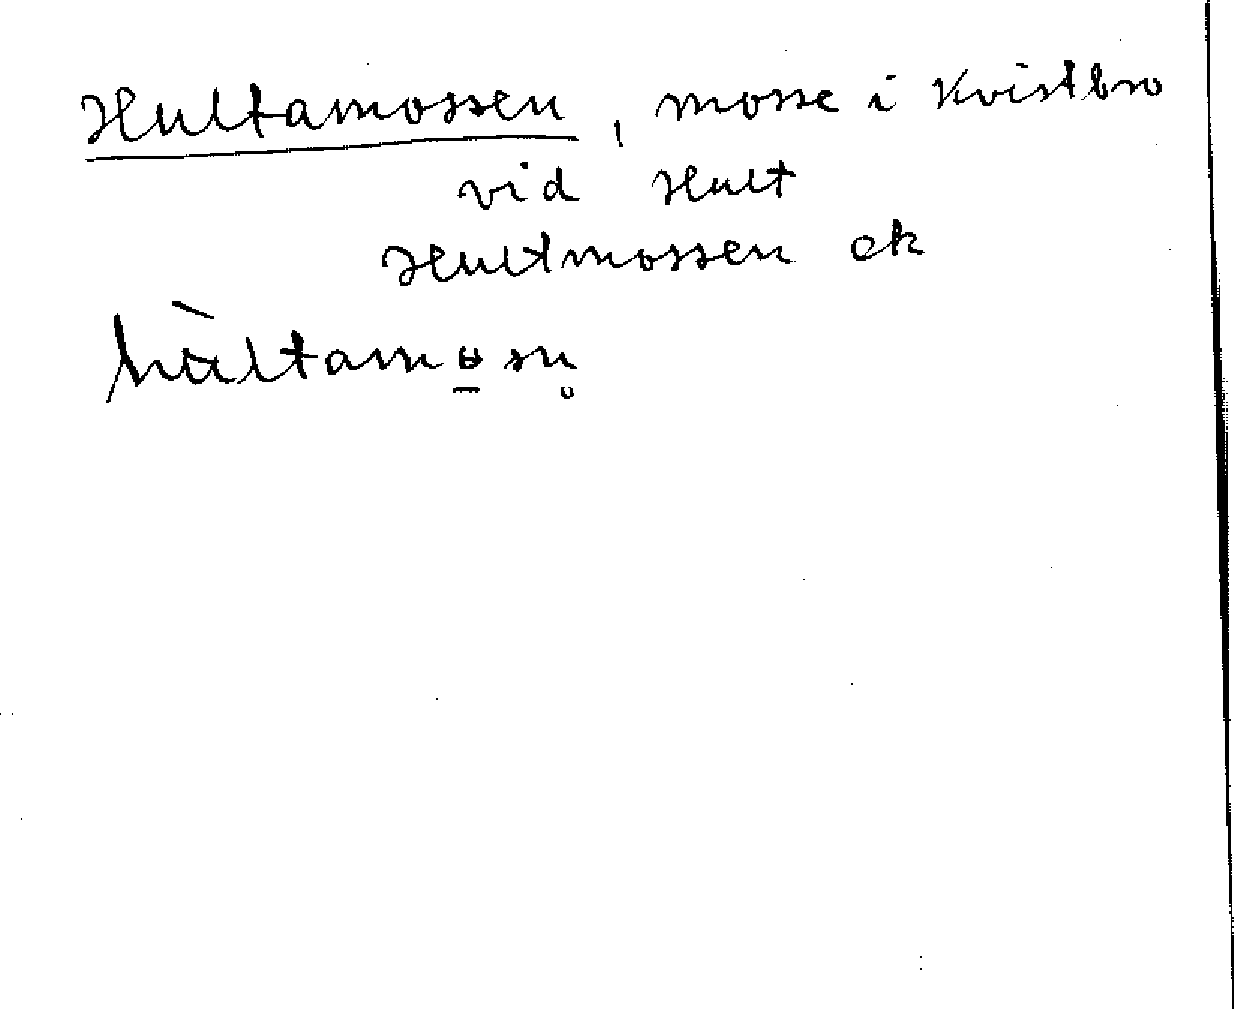 Hultamossen, mosse i Kvistbro
vid Hult
Hultmossen ek
hùltamɵ̠sn̥